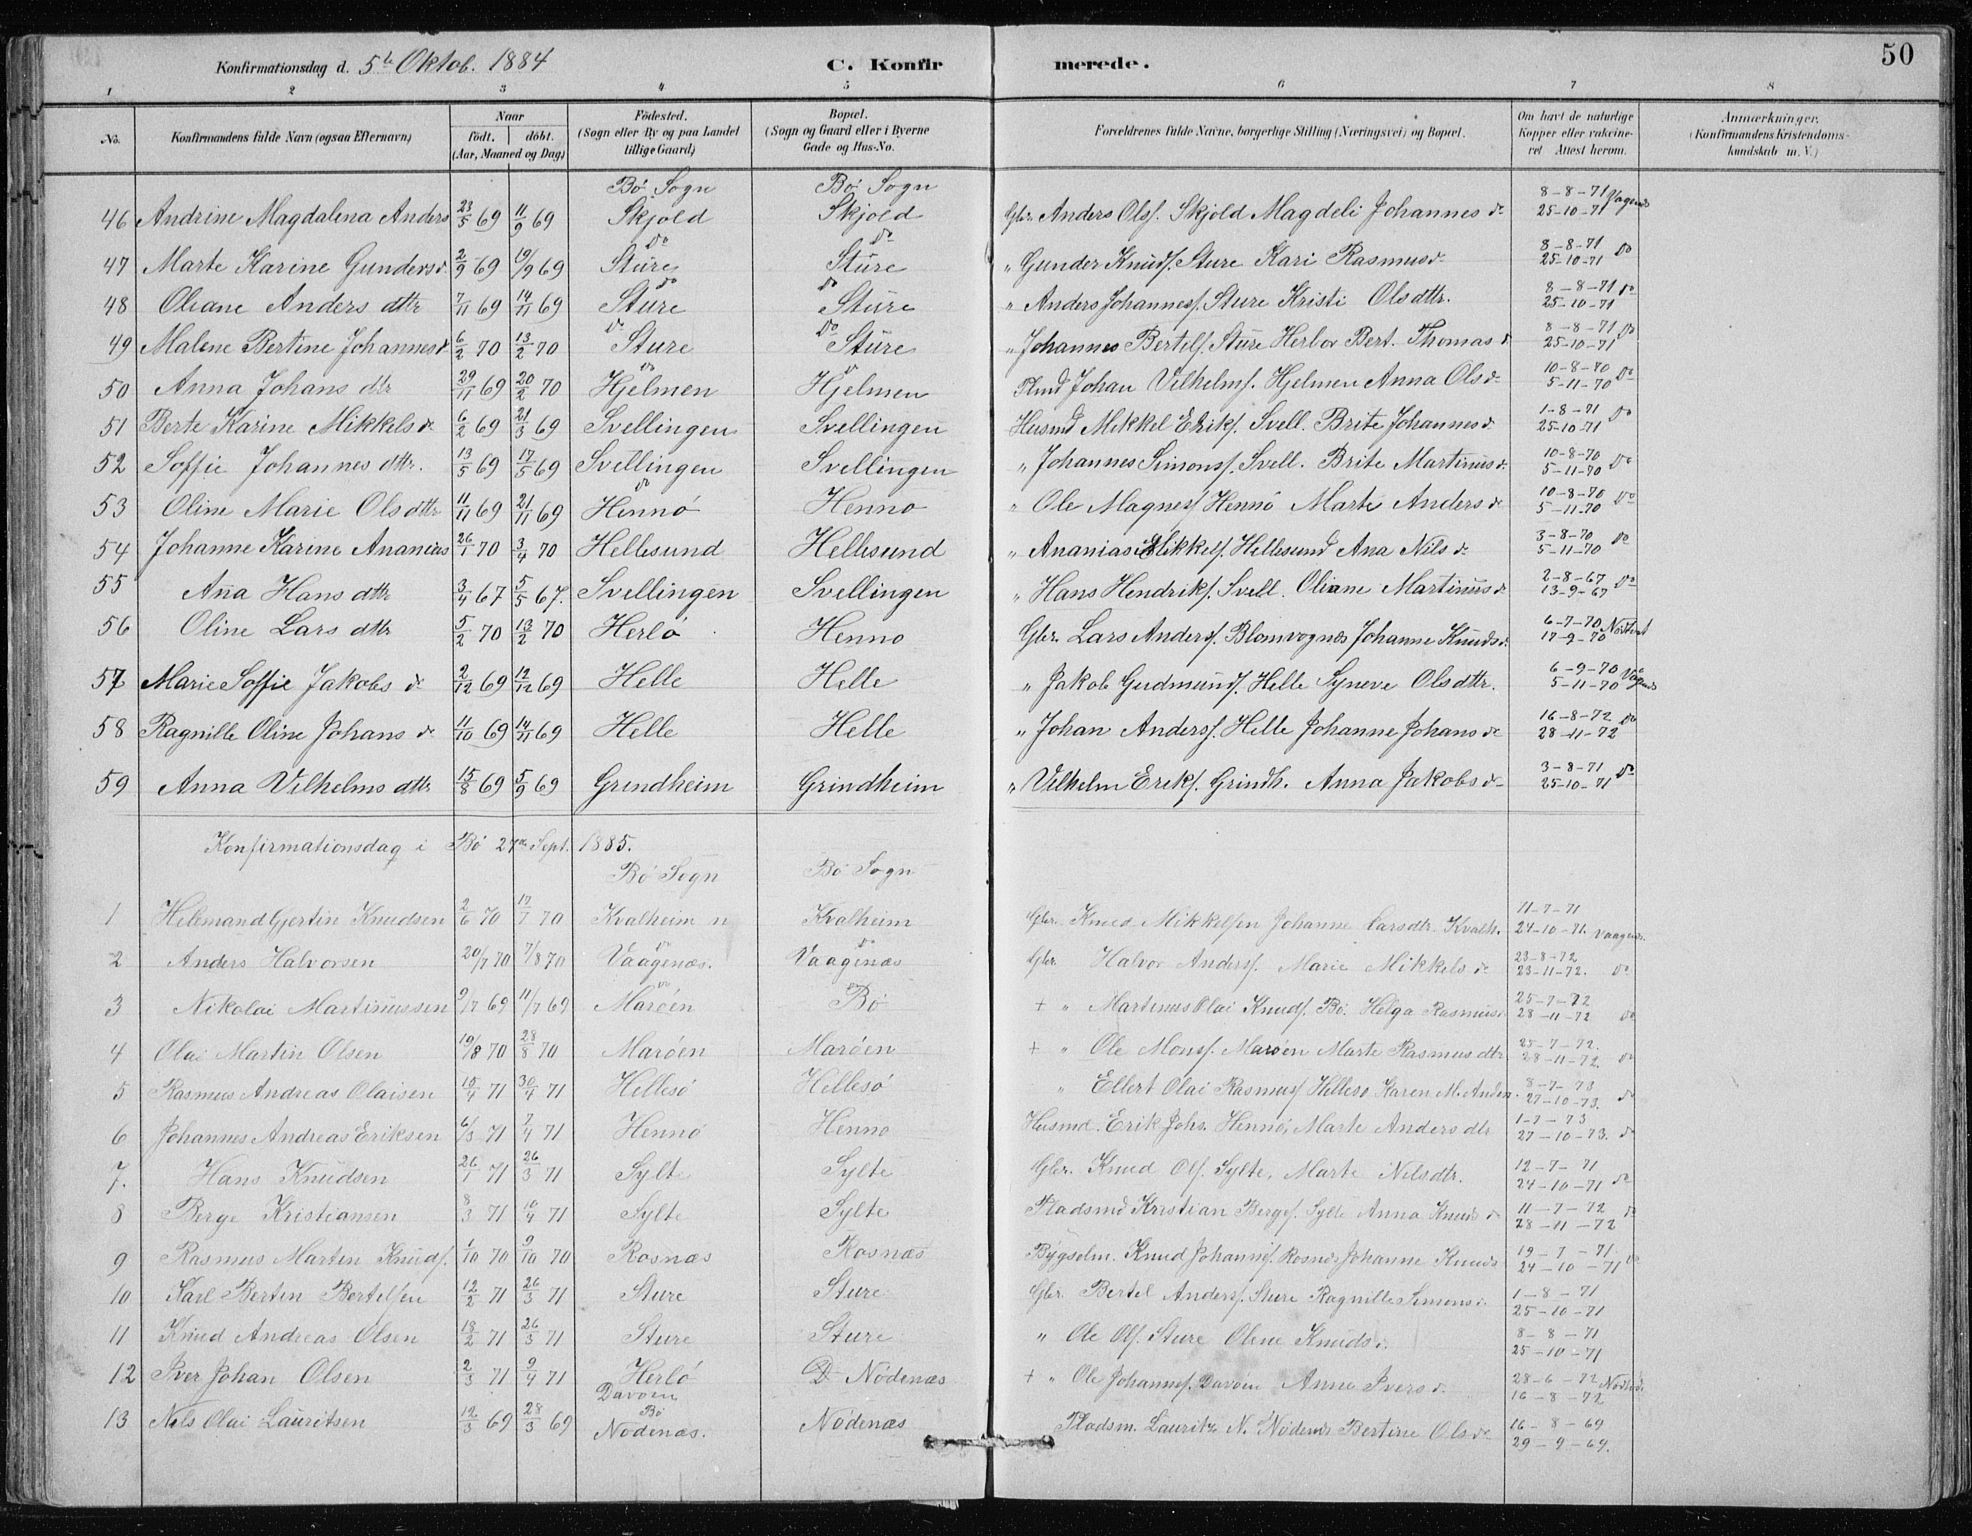 50
Konfirmationsdag d. 5te Oktob. 1884 C. Konfirmerede.
1 2 3 4 5 6 7 8
No. Konfirmandens fulde Navn (ogsaa Efternavn) Naar født. døbt. (Aar, Maaned og Dag) Födested. (Sogn eller By og paa Landet tillige Gaard) Bopæl. (Sogn og Gaard eller i Byerne Gade og Hus-No. Forældrenes fulde Navne, borgerlige Stilling (Næringsvei) og Bopæl. Om havt de naturlige Kopper eller vakcineret Attest herom. Anmærkninger. (Konfirmandens Kristendomskundskab m. V.)
Bö Sogn Bö Sogn
46 Andrine Magdalena Anders 23/5 69 11/9 69 Skjold Skjold Gbr. Anders Ols. Skjold Magdeli Johannes dr 8-8-71 25-10-71 Vagenes
47 Marte Karine Gundersd. 2/9 69 19/9 69 do Sture do Sture " Gunder Knuds. Sture Kari Rasmusdr 8-8-71 25-10-71 do
48 Oliane Anders dttr 7/11 69 14/11 69 do Sture do Sture " Anders Johannes. Sture Kristi Olsdttr. 8-8-71 25-10-71 do
49 Malene Bertine Johannesd 6/2 70 13/2 70 do Sture do Sture " Johannes Bertels. Sture Herbor Bert. Thomas d 8-8-71 25-10-71 do
50 Anna Johans dtr 29/11 69 20/2 70 do Hjelmen do Hjelmen Johan Vilhelms. Hjelmen Anna Ols dr 10-8-70 5-11-70 do
51 Berte Karine Mikkels dr 6/2 69 21/3 69 Svellingen Svellingen Husmd Mikkel Eriks. Svell. Brite Johannes d. 1-8-71 25-10-71 do
52 Soffie Johannes dttr. 13/5 69 17/5 69 Svellingen Svellingen " Johannes Simons. Svell. Brite Martinus d. 10-8-70 5-11-70 do
53 Oline Marie Olsdttr 11/11 69 21/11 69 do Hennö Henno " Ole Magnes. Hennö Marte Anders dr 10-8-70 5-11-70 do
54 Johanne Karine Ananias 26/1 70 3/4 70 Hellesund Hellesund " Ananias Mikkels. Hellesund Ana Nils dr 3-8-70 5-11-70 do
55 Ana Hans dttr 3/4 67 5/5 67. Svellingen Svellingen " Hans Hendriks. Svell. Oliane Martinus dr 2-8-67 13-9-67 do
56 Oline Lars dttr 5/2 70 13/2 70 Herlö Henno Gbr. Lars Anders. Blomvognes Johanne Knudsd. 6-7-70 17-9-70
57 Marie Soffie Jakobs dr 2/12 69 12/12 69 Helle Helle " Jakob Gudmund. Helle Syneve Olsdttr. 6-9-70 5-11-70
58 Ragnille Oline Johans dr 11/10 69 14/11 69 Helle Helle " Johan Anders. Helle Johanne Johans dr 16-8-72 28-11-72 do
59 Anna Vilhelms dttr 15/8 69 5/9 69 Grindheim Grindheim " Vilhelm Eriks. Grindh. Anna Jakobs dr 3-8-71 25-10-71 do
Konfirmationsdag i Bö 27de Sept. 1885.
Bö Sogn Bö Sogn
1 Helemand Gjertin Knudsen 2/6 70 17/7 70 Kvalheim n Kvalheim Gbr. Knud Mikkelsen Johanne Larsdtr. Kvalh. 11-7-71 24-10-71. Vaagenes.
2 Anders Halvorsen 20/7 70 7/8 70 do Vaagenæs. do Vaagenæs Gbr. Halvor Anders. Marie Mikkels dr 23-8-72 23-11-72. do
3 Nikolai Martinussen 9/7 69 11/7 69 do Maröen Bö + " Martinus Olai Knuds. Bö. Helga Rasmusd. 25-7-72 28-11-72 do
4 Olai Martin Olsen 19/8 70 28/8 70 Maröen Maröen + " Ole Mons. Maröen Marte Rasmus dtr. 25-7-72. 28-11-72. do
5 Rasmus Andreas Olaisen 15/4 71 30/4 71 Hellesö Hellesö " Ellert Olai Rasmus. Hellesö Karen M. Anders. 8-7-73 27-10-73. do
6 Johannes Andreas Eriksen 6/3 71 7/4 71 Hennö Henno Husmd. Erik Johs. Hennö, Marte Anders dtr 1-7-73 27-10-73. do
7. Hans Knudsen 26/1 71 26/3 71 Sylte Sylte Gbr. Knud Ols. Sylte, Marte Nilsdtr. 12-7-71 24-10-71 do
8 Berge Kristiansen 8/3 71 10/4 71 Sylte Sylte Pladsmd Kristian Berges. Sylte Anna Knuds dr 11-7-72 28-11-72 do
9 Rasmus Martin Knuds. 1/10 70 9/10 70 Rosnæs Rosnæs Bygselm. Knud Johannes. Rosnes Johanne Knuds 19-7-71. 24-10-71 do
10 Karl Bertin Bertelsen 12/2 71 26/3 71 Sture Sture Gbr. Bertel Anders. Sture Ragnille Simons d. 1-8-71 25-10-71
11 Knud Andreas Olsen 18/2 71 26/3 71 Sture Sture " Ole Ols. Sture Oline Knuds d. 8-8-71 25-10-71
12 Iver Johan Olsen 2/3 71 9/4 71 Herlö Davöen D Nödenæs + " Ole Johannes. Davöen Anne Ivers d. 28-6-72 16-8-72
13 Nils Olai Lauritsen 12/3 69 28/3 69 Bö Nödenæs. Nödenæs Pladsm. Lauritz N. Nödenæs Bertine Ols dr 16-8-69 29-9-69.